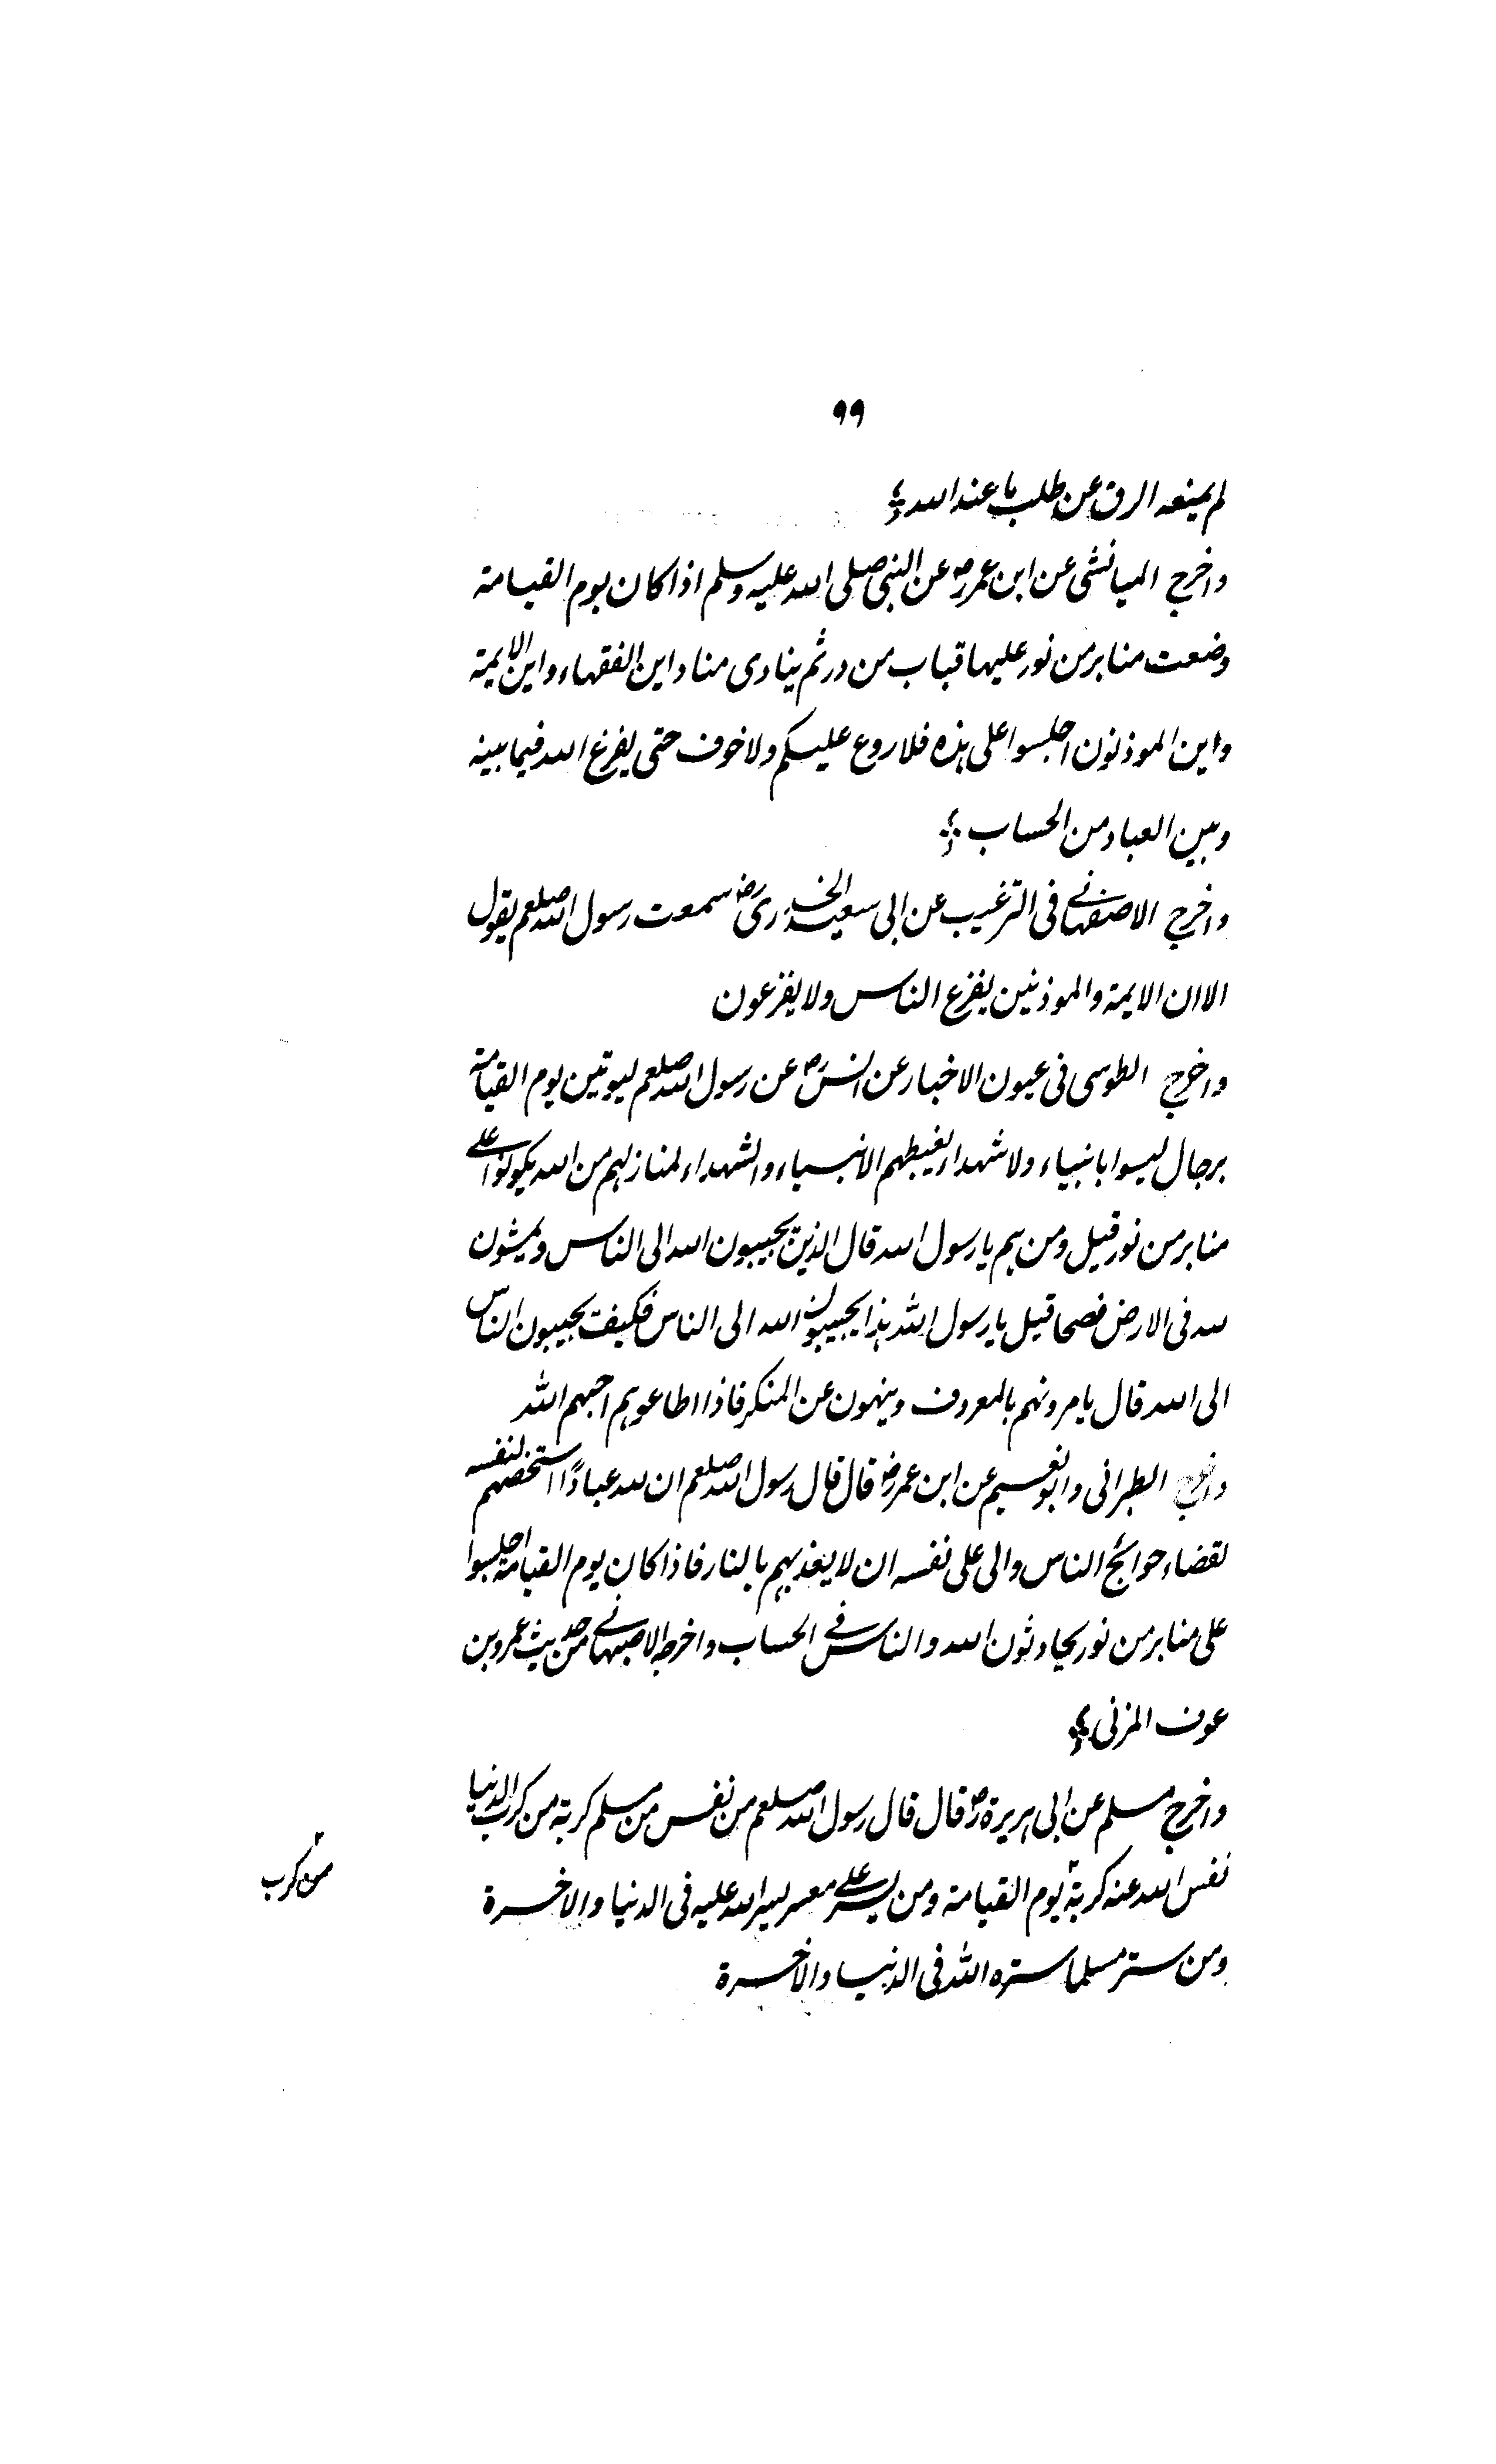 ٩٩
لم يمنعه الرق عن طلب ما عند الله
واخرج الميانشى عن ابن عمر رض عن النبى صلى الله عليه وسلم اذا كان يوم القيامة
وضعت منابر من نور عليها قباب من در ثم ينادى مناد اين الفقهاء واين الايمة
واين الموذنون اجلسوا على هذه فلا روع عليكم ولا خوف حتى يفرغ الله فيما بينه
وبين العباد من الحساب
واخرج الاصفهانے فى الترغيب عن ابى سعيد الخدرى رض سمعت رسول الله صلعم يقول
الا ان الايمة والموذنين يفزع الناس ولا يفزعون
واخرج الطوسى فى عيون الاخبار عن انس رض عن رسول الله صلعم ليوتين يوم القيامة
برجال ليسوا بانبياء ولا شهداء يغبطهم الانبياء والشهداء لمنازلهم من الله يكونوا علے
منابر من نور قيل ومن هم يا رسول الله قال الذين يحببون الله الى الناس ويمشون
لله فى الارض نصحا قيل يا رسول الله هذا يحببون الله الى الناس فكيف يحببون الناس
الى الله قال يامرونهم بالمعروف وينهون عن المنكر فاذا اطاعوهم احبهم الله
واخرج الطبرانى وابو نعيم عن ابن عمر رض قال قال رسول الله صلعم ان لله عبادًا استخصهم لنفسه
لقضاء حوائج الناس والى على نفسه ان لا يعذبهم بالنار فاذا كان يوم القيامة اجلسوا
على منابر من نور يحادثون الله والناس فے الحساب واخرجه الاصبهانے من حديث عمرو بن
عوف المزنى
واخرج مسلم عن ابى هريرة رض قال قال رسول الله صلعم من نفس من مسلم كربة من كرب الدنيا
نفس الله عنه كربة يوم القيامة ومن يسر علے معسر يسر الله عليه فى الدنيا والاخرة
من كرب
ومن ستر مسلما ستره الله فى الدنيا والاخرة